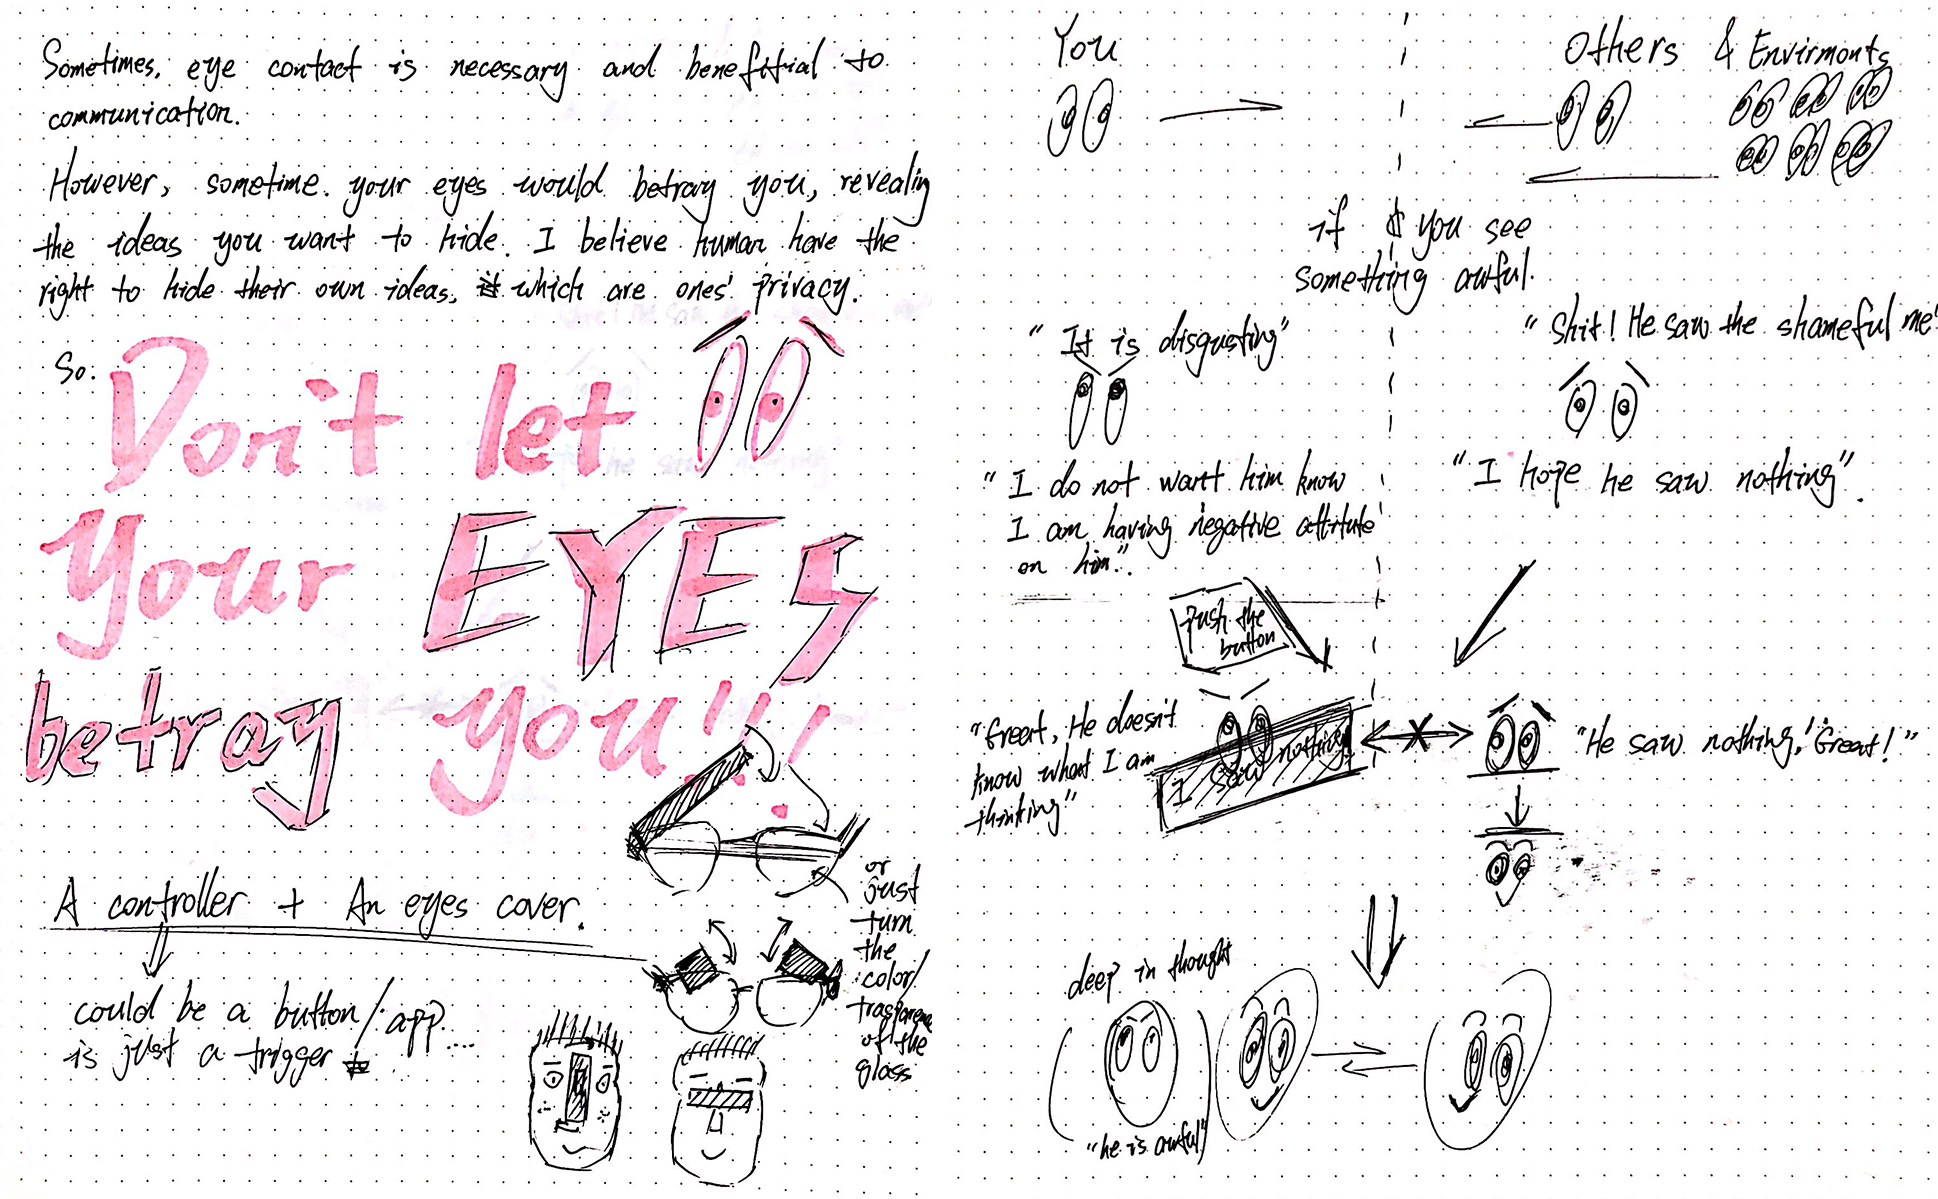 Sometimes, eye contact is necessary and benefitial to
communication.
However, sometime. your eyes would betray you, revealing
the ideas you want to hide. I believe human have the
right to hide their own ideas, which are ones' privacy.
So.
Don't let
your EYES
betray you!!!
A controller + An eyes cover.
could be a button/app....
is just a trigger
or
just
turn
the
color/
trasparence
of the
glass
You
Others & Envirmonts
if you see
something awful.
"It is disgusting"
"Shit! He saw the shameful me"
"I do not want him know
I am having negative attitute
on him".
"I hope he saw nothing".
push the
button
"Great, He doesn't
know what I am
thinking"
I saw nothing
"He saw nothing, 'Great!"
deep in thought
"he is awful"